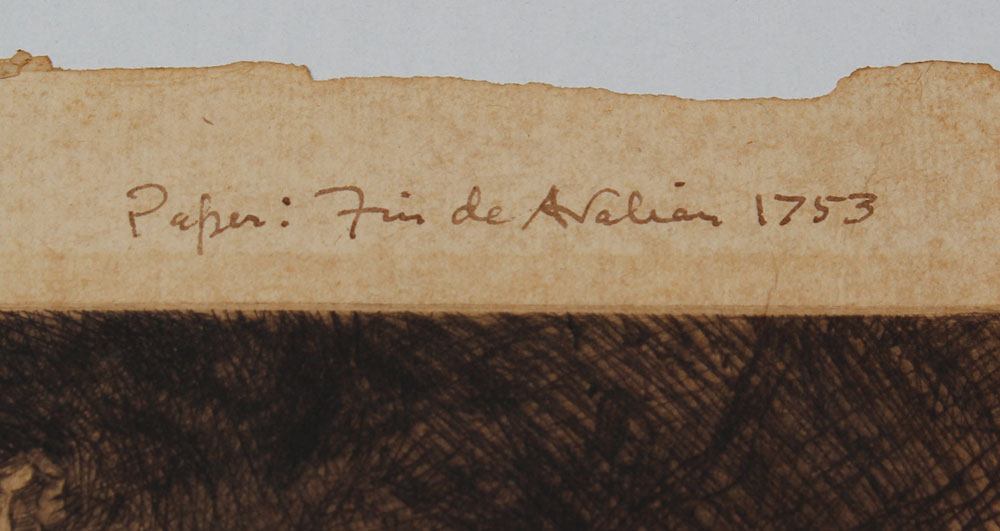 Paper: Fin de AValian 1753